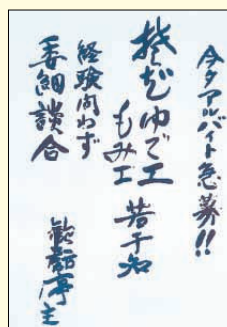 今夕アルバイト急募!!
ゆで工
もみ工 若干名
経験問わず
委細談合
亭主